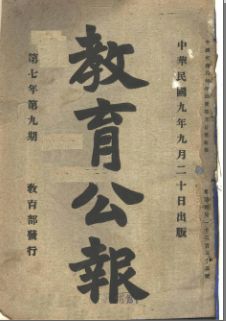 中華民國九年九月二十日出版
教育公報
第七年第九期
教育部發行